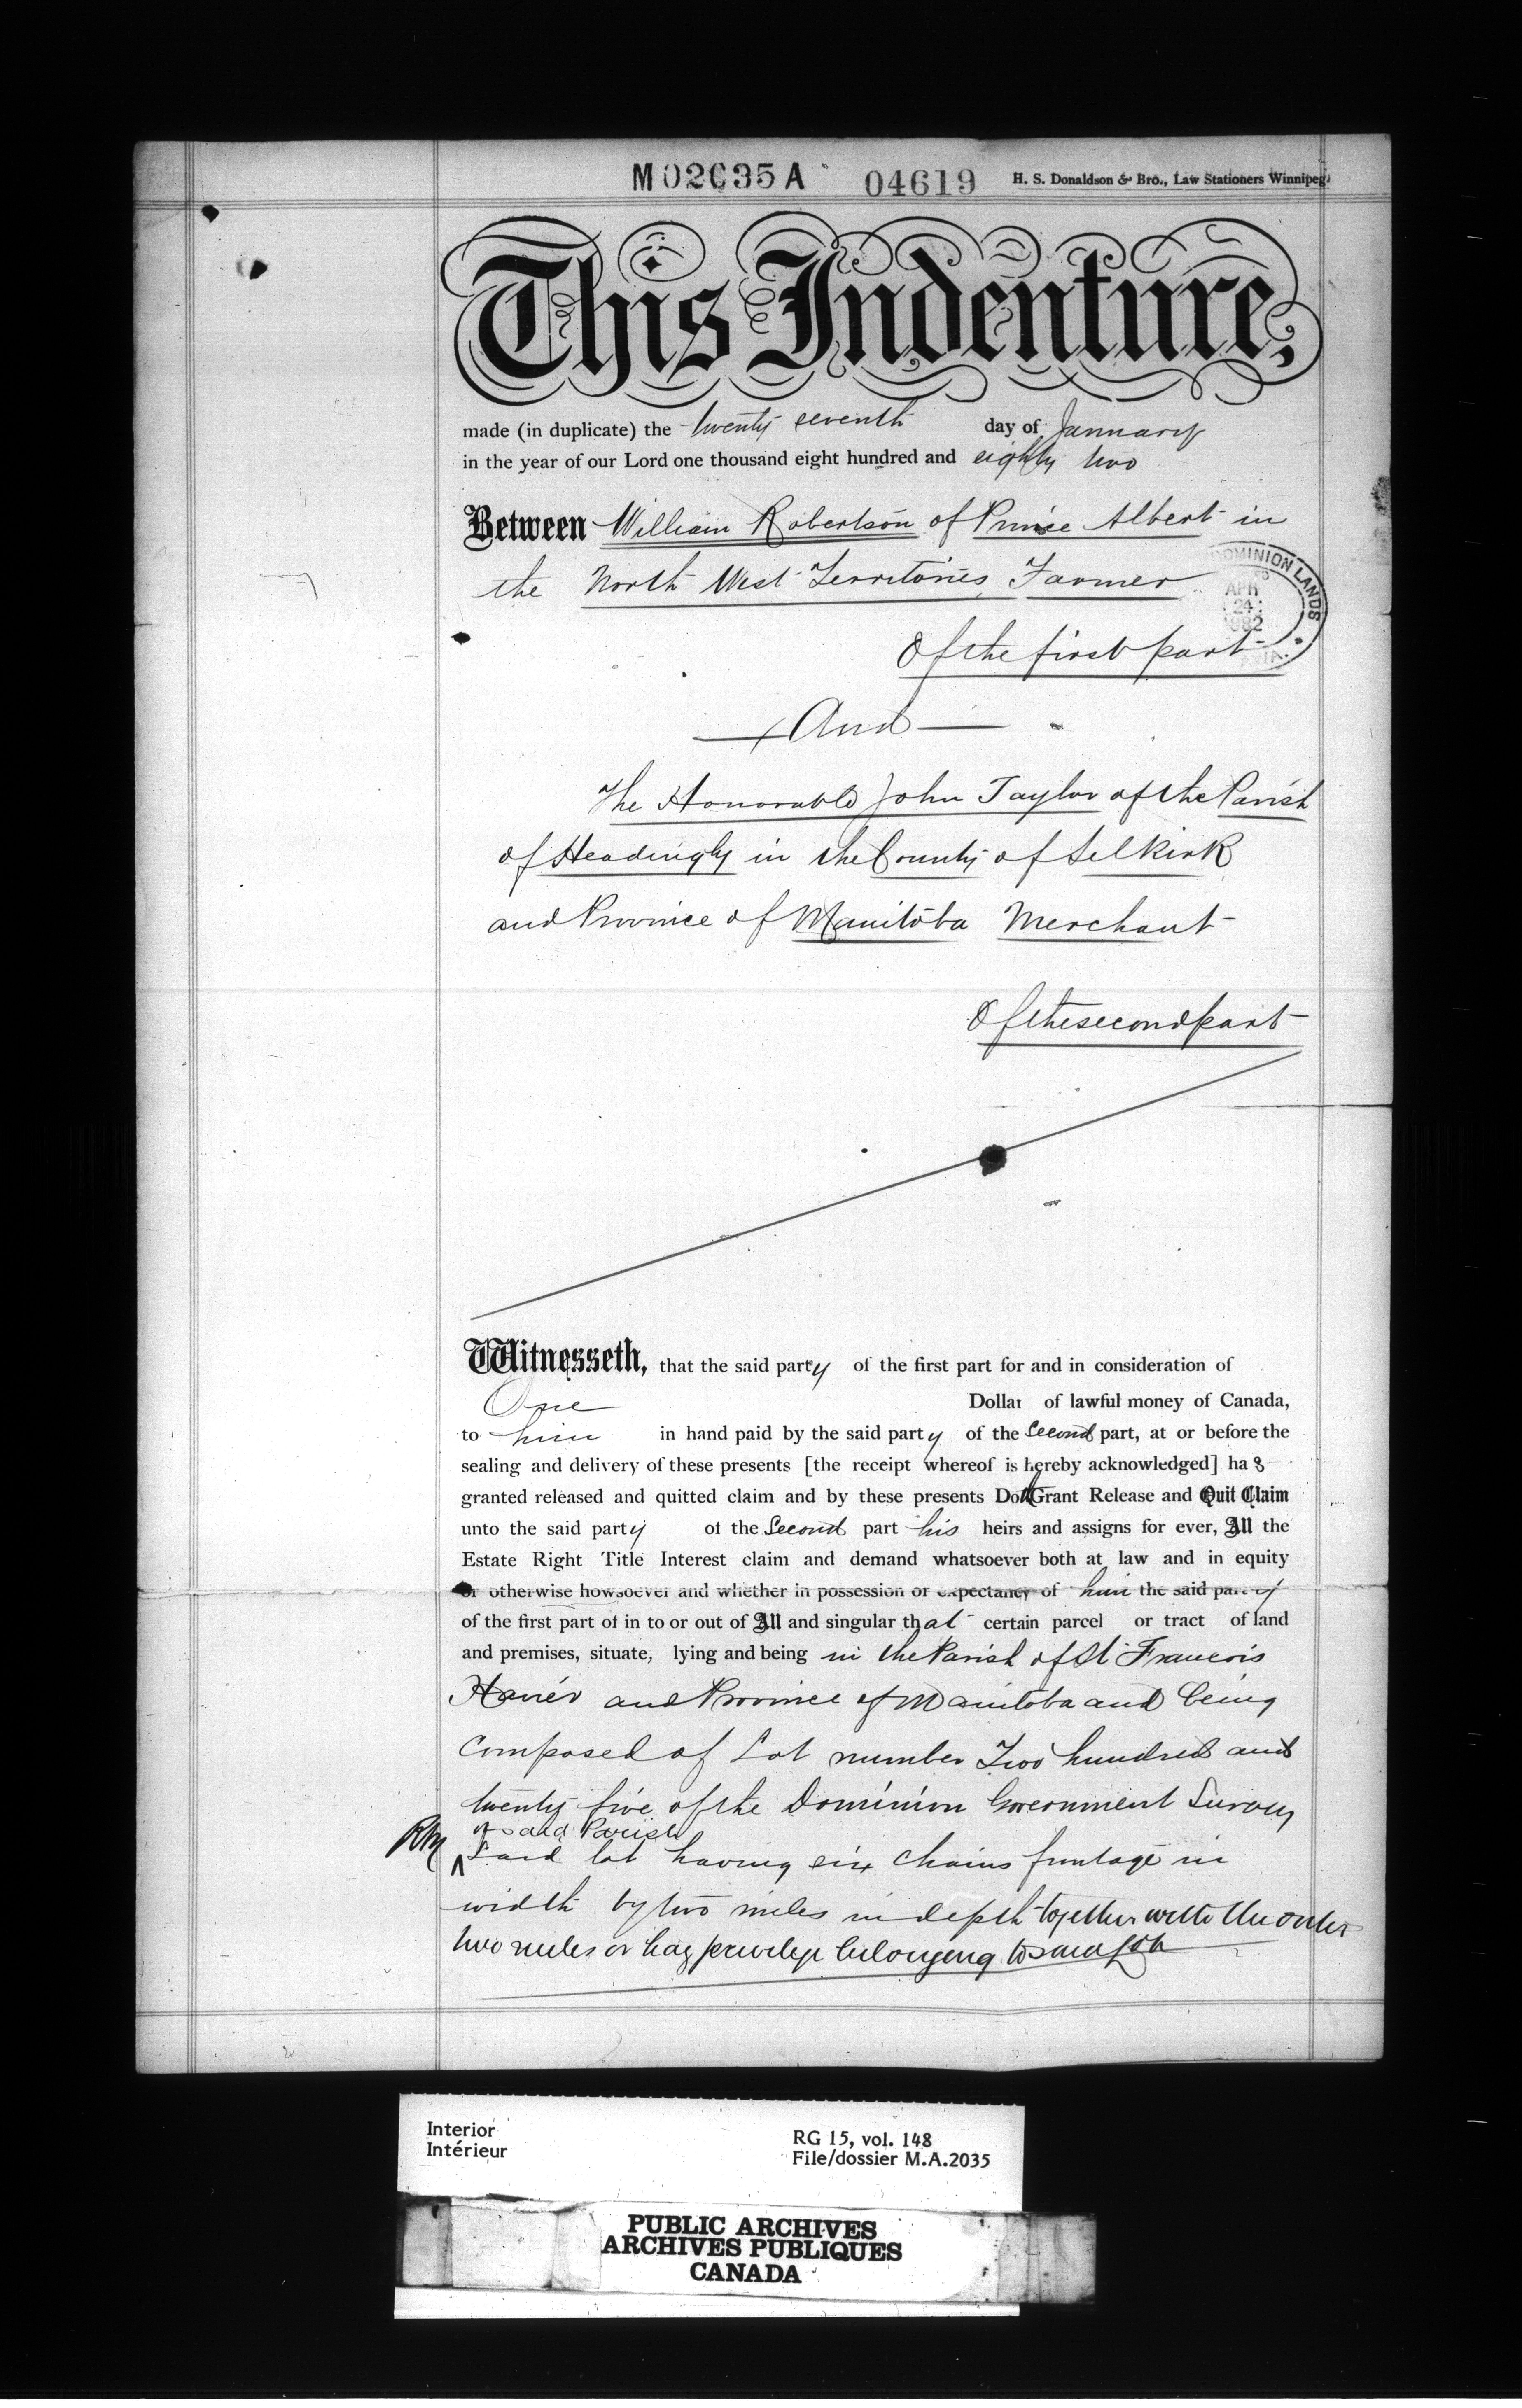 M02035A 04619 H. S. Donaldson & Bro., Law Stationers Winnipeg.
This Indenture,
made (in duplicate) the twenty seventh day of January
in the year of our Lord one thousand eight hundred and eighty two
Between William Robertson of Prince Albert in
the North West Territories, Farmer
DOMINION LANDS
APR
24
1882
Of the first part
And
The Honorable John Taylor of the Parish
of Headingly in the County of Selkirk
and Province of Manitoba Merchant
Of the second part
Witnesseth, that the said party of the first part for and in consideration of
One Dollar of lawful money of Canada,
to him in hand paid by the said party of the Second part, at or before the
sealing and delivery of these presents [the receipt whereof is hereby acknowledged] has
granted released and quitted claim and by these presents Doth Grant Release and Quit Claim
unto the said party of the Second part his heirs and assigns for ever, All the
Estate Right Title Interest claim and demand whatsoever both at law and in equity
or otherwise howsoever and whether in possession or expectancy of him the said party
of the first part of in to or out of All and singular that certain parcel or tract of land
and premises, situate, lying and being in the Parish of St Francois
Xavier and Province of Manitoba and being
composed of Lot number Two hundred and
twenty five of the Dominion Government Survey
of said Parish
RM Said lot having six chains frontage in
width by two miles in depth together with the outer
two miles or hay privilege belonging to said lot
Interior
Intérieur
RG 15, vol. 148
File/dossier M.A.2035
PUBLIC ARCHIVES
ARCHIVES PUBLIQUES
CANADA